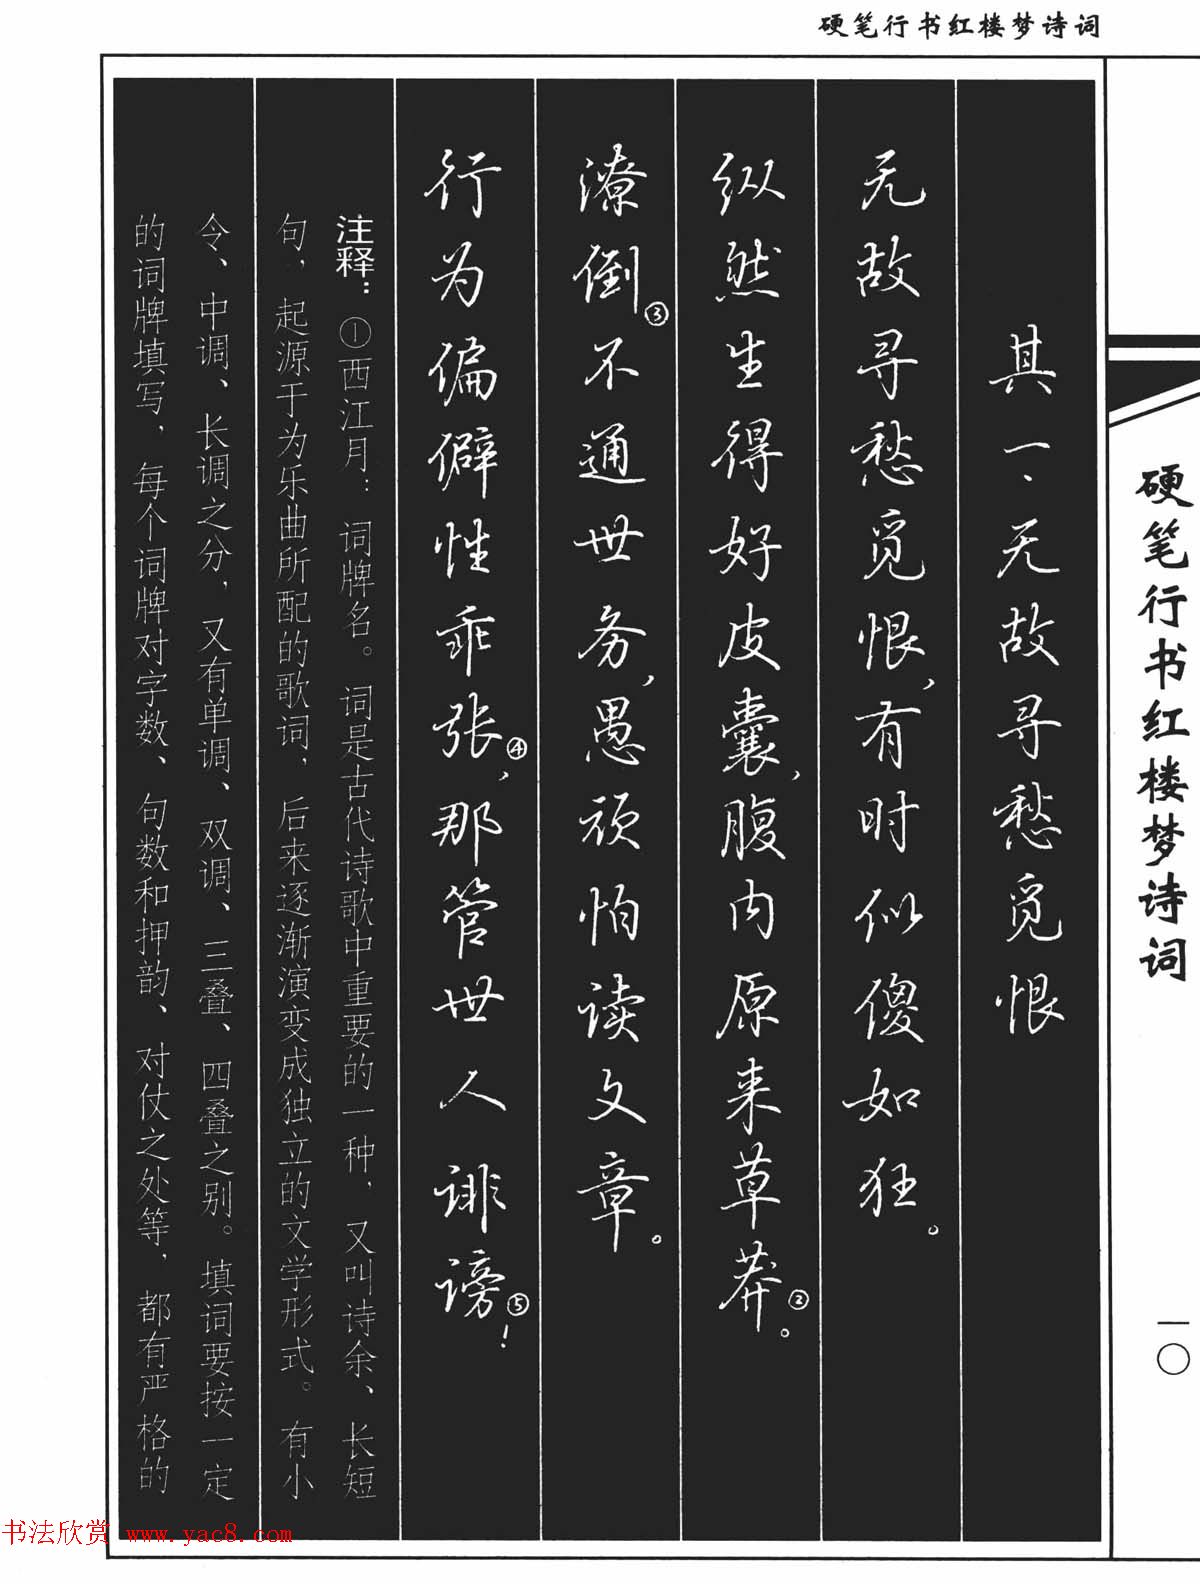 硬笔行书红楼梦诗词
硬笔行书红楼梦诗词
一〇
其一、无故寻愁觅恨
无故寻愁觅恨，有时似傻如狂。
纵然生得好皮囊，腹内原来草莽②。
潦倒③不通世务，愚顽怕读文章。
行为偏僻性乖张④，那管世人诽谤⑤！
注释：①西江月：词牌名。词是古代诗歌中重要的一种，又叫诗余、长短
句，起源于为乐曲所配的歌词，后来逐渐演变成独立的文学形式。有小
令、中调、长调之分，又有单调、双调、三叠、四叠之别。填词要按一定
的词牌填写，每个词牌对字数、句数和押韵、对仗之处等，都有严格的
书法欣赏 www.yac8.com